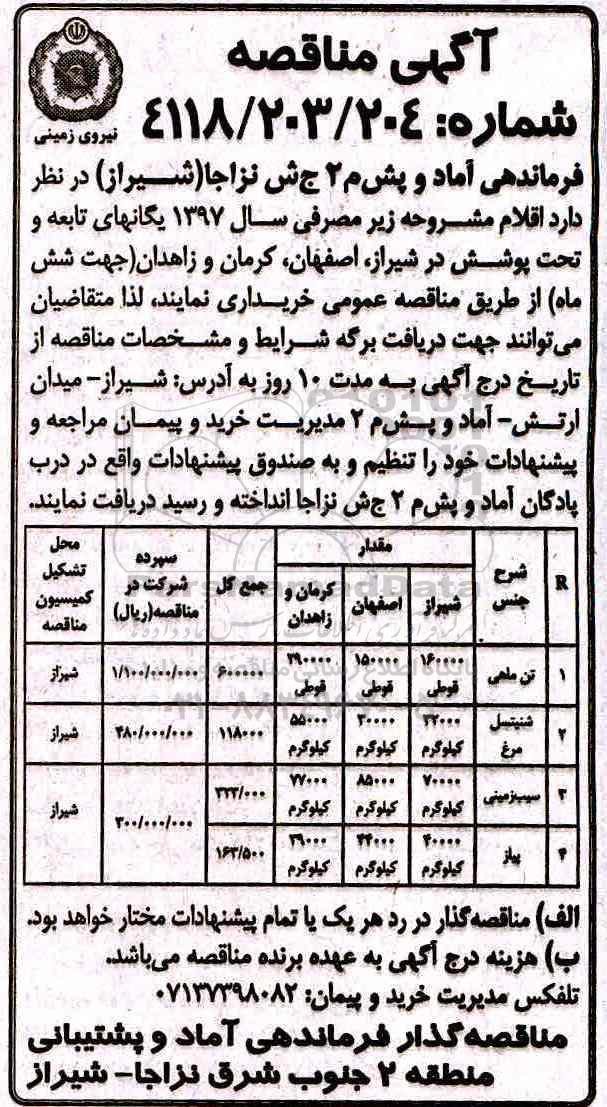 آگهی مناقصه
شماره: ۴۱۱۸/۲۰۳/۲۰۴
نیروی زمینی
فرماندهی آماد و پش م۲ ج‌ش نزاجا(شیراز) در نظر
دارد اقلام مشروحه زیر مصرفی سال ۱۳۹۷ یگانهای تابعه و
تحت پوشش در شیراز، اصفهان، کرمان و زاهدان(جهت شش
ماه) از طریق مناقصه عمومی خریداری نمایند، لذا متقاضیان
می‌توانند جهت دریافت برگه شرایط و مشخصات مناقصه از
تاریخ درج آگهی به مدت ۱۰ روز به آدرس: شیراز- میدان
ارتش- آماد و پش‌م ۲ مدیریت خرید و پیمان مراجعه و
پیشنهادات خود را تنظیم و به صندوق پیشنهادات واقع در درب
پادگان آماد و پش‌م ۲ ج‌ش نزاجا انداخته و رسید دریافت نمایند.
R شرح جنس مقدار جمع کل سپرده شرکت در مناقصه(ریال) محل تشکیل کمیسیون مناقصه
شیراز اصفهان کرمان و زاهدان
۱ تن ماهی ۱۶۰۰۰۰ قوطی ۱۵۰۰۰۰ قوطی ۲۹۰۰۰۰ قوطی ۶۰۰۰۰۰ ۱/۱۰۰/۰۰۰/۰۰۰ شیراز
۲ شنیتسل مرغ ۳۳۰۰۰ کیلوگرم ۳۰۰۰۰ کیلوگرم ۵۵۰۰۰ کیلوگرم ۱۱۸۰۰۰ ۴۸۰/۰۰۰/۰۰۰ شیراز
۳ سیب‌زمینی ۷۰۰۰۰ کیلوگرم ۸۵۰۰۰ کیلوگرم ۷۷۰۰۰ کیلوگرم ۳۰۰/۰۰۰/۰۰۰ شیراز
۴ پیاز ۴۰۰۰۰ کیلوگرم ۴۴۰۰۰ کیلوگرم کیلوگرم ۱۶۳/۵۰۰
الف) مناقصه‌گذار در رد هر یک یا تمام پیشنهادات مختار خواهد بود.
ب) هزینه درج آگهی به عهده برنده مناقصه می‌باشد.
تلفکس مدیریت خرید و پیمان: ۰۷۱۳۷۳۹۸۰۸۲
مناقصه‌گذار فرماندهی آماد و پشتیبانی
منطقه ۲ جنوب شرق نزاجا- شیراز